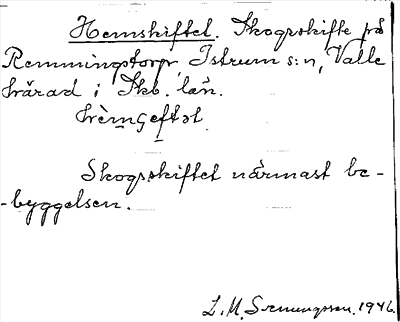 Hemskiftet. Skogsskifte på
Remmingstorp, Istrum s:n, Valle
härad i Skb. län.
Skogsskiftet närmast be-
-byggelsen.
L. M. Svenungsson. 1946.